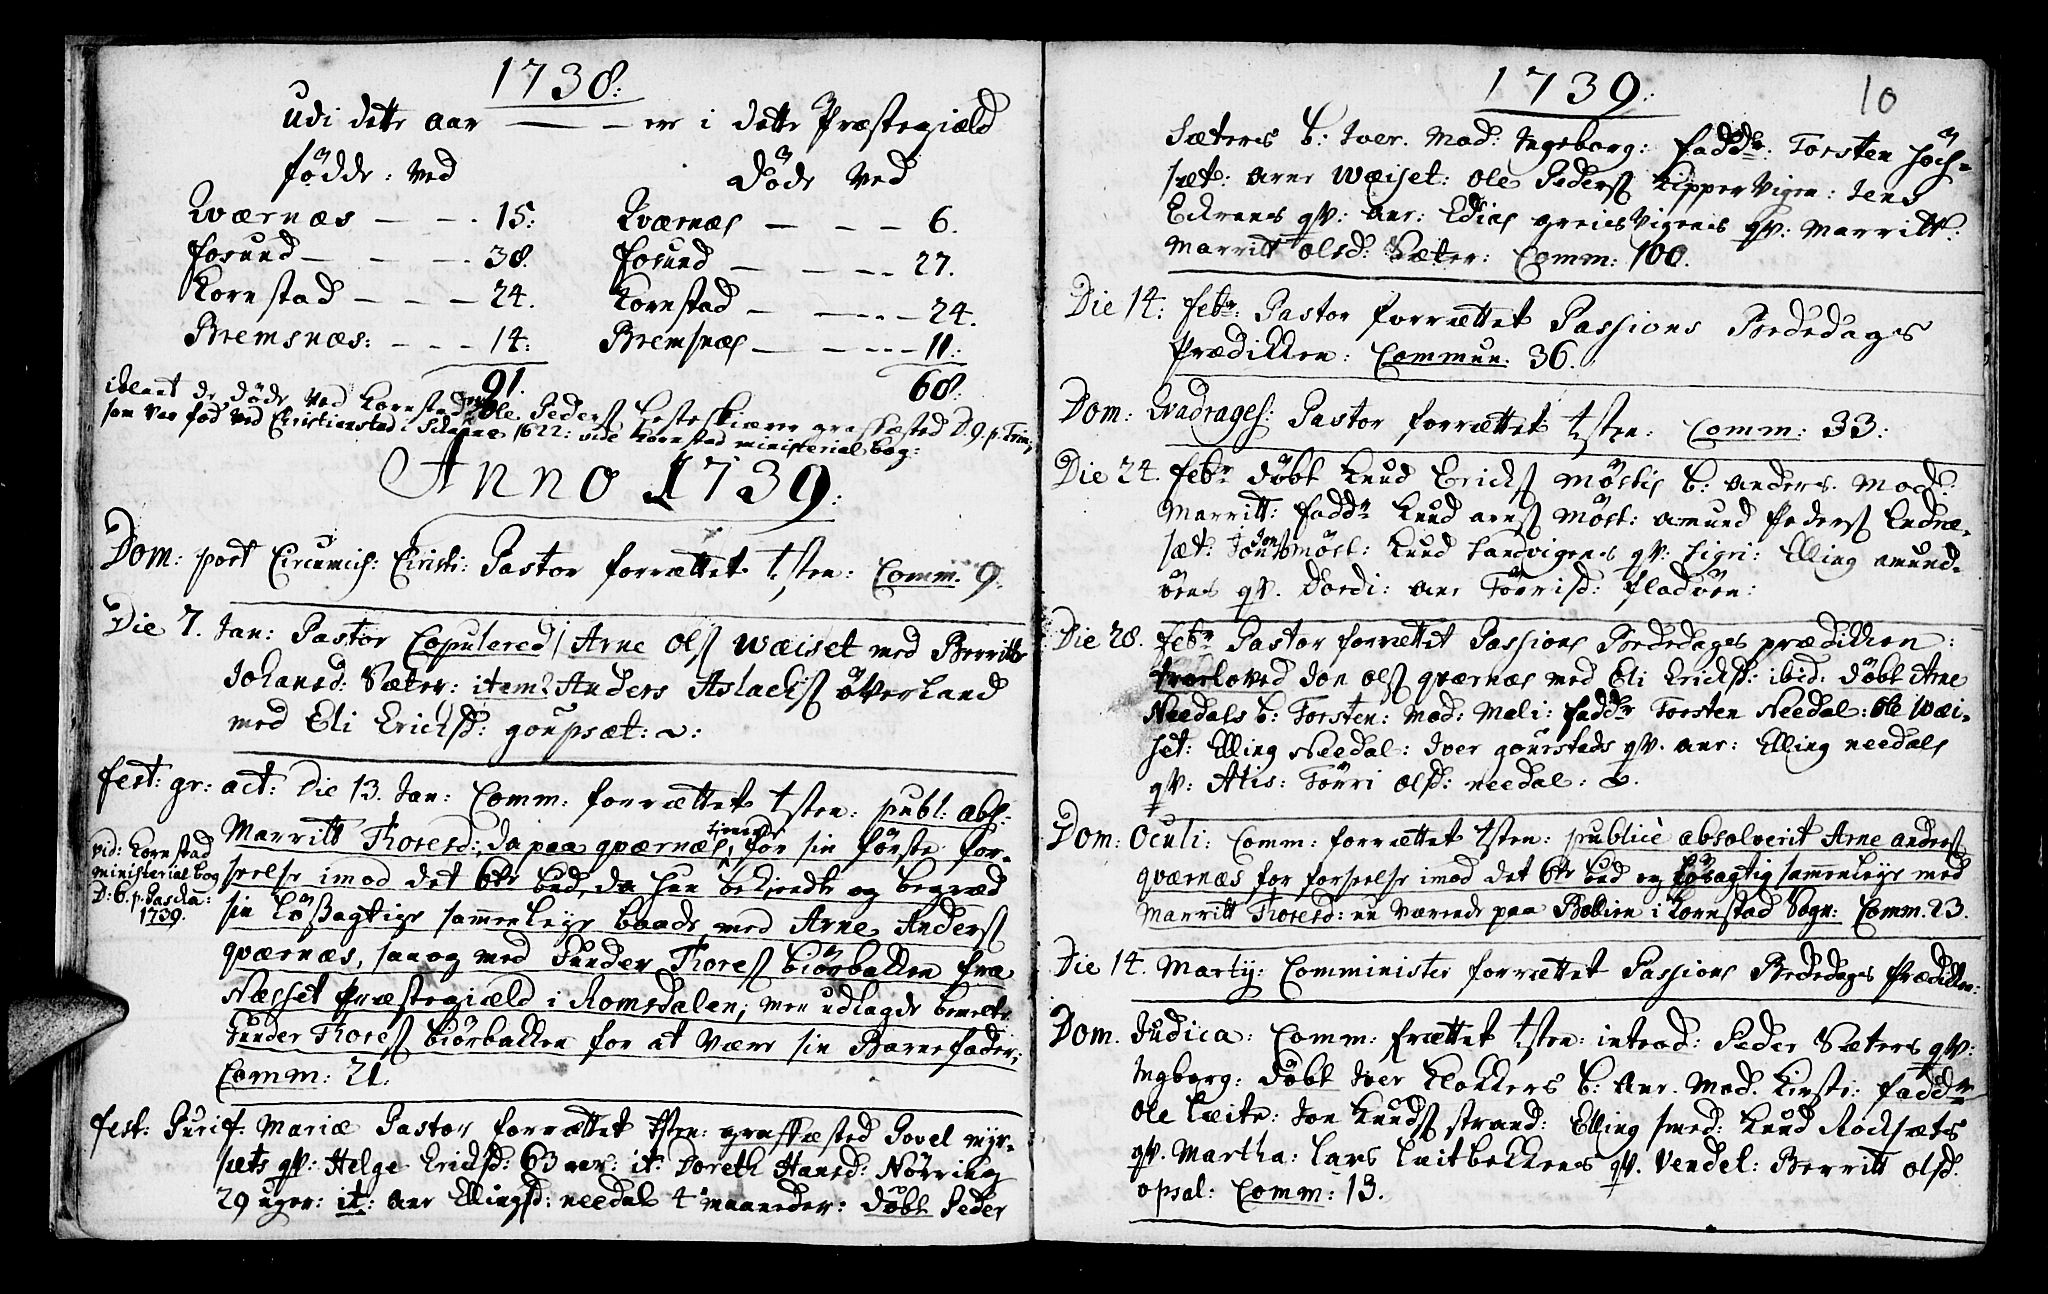 1738:
udi dette aar — — er i dette Præstegiæld
fødde: ved
Døde ved
Qværnæs — — . 15:
Qværnæs — — — 6.
fosund — — . 38.
fosund — — — .. 27.
Kornstad — — — 24.
Kornstad — — .. — 24.
Bremsnæs: - — — 14:
Bremsnæs — — .. — 11:
91.
68:
iblant de døde ved Kornstad er Ole Peders græsfæsted D. 9. p. Trin,
som var fød ved Christianstad i Schaane 1622: vide Kornstad ministerial bog:
Anno 1739:
Dom: post Circumcis: Christi: Pastor forrættet t,sten: Comm. 9.
Die 7. Jan: Pastor Copulered / Arne Ols Wæiset med Berritte
Johansd: Sæter: item 2 Anders Aslachs överland
med Eli Ericksd: goupsæt: ~:
fest: gr: act: Die 13. Jan: Comm: forrættet t,sten: publ: abs:
Marritt Thoresd:, da paa qværnæs, tienende for sin förste for-
vid: Kornstad
ministerial bog
D: 6. p. Pascha:
1739.
seelse imod det 6te bud, da hun bekiendte og begræd
sin løsagtige sammenleye baade med Arne Anders
qværnæs, saa og med Gunder Thores biörbakken fra
Næsset Præstegiæld i Romsdalen; men udlagde bemelte
Gunder Thores biörbakken for at være sin Barnefader;
Comm: 21.
fest: Purif. Mariæ Pastor forrættet t,sten: græsfæsted Povel myr-
sæts qv: Helge Ericksd: 63 aar: it: Doreth Hansd: Nörring
29 uger: it: Anr Ellingsd: needals 4 maaneder: döbt Peder
1739:
10
Sæters b: Iver. Mod: Ingeborg: fadd: Torsten Höch-
sæt: Arne Wæiset: Ole Peders KipperVigen: Jens
Eckrens qv: Anr: Edias greisVigens qv: Marritt:
Marritt Olsd: Sæter: Comm: 100.
Die 14: febr: Pastor forrættet Passions Bededags
Prædikken: Commun. 36.
Dom: Qvadrages: Pastor forrættet t,sten: Comm: 33:
Die 24. febr döbt Knud Ericks Möstis b: Anders. Mod:
Marritt: fadd: Knud Arns Möst: Amund Peders Endræ-
sæt: Jon Möst: Knud Sandvigens qv: Sigri: Elling Amund-
öens qv. Dordi: Anr Törrisd: fladöen:
Die 28. febr Pastor forrættet Passions Bededags prædikken:
troloved Jon Ols qværnæs med Eli Ericksd: ibid: döbt Arne
Needals b: Torsten: Mod: Mali: fadd: Torsten Needal: Ole Wæi-
set: Elling Needal: Iver gourstads qv. Anr: Elling needals
qv: Atis: Törri Olsd: needal: ~.
Dom: Oculi: Comm: forrættet t,sten: publice absolverit Arne Anders
qværnæs for forseelse imod det 6te bud og løsagtig sammenleye med
Marritt Thoresd: nu værende paa Bollien i Kornstad Sogn: Comm. 23.
Die 14. Martij: Comminister forrættet Passions Bededags Prædikken:
Dom. Judica: Comm: frættet t,sten: introd: Peder Sæters qv:
Ingborg: döbt Iver Klokkers b: Anr. Mod. Kirsti: fadd:
Ole Leite: Jon Knuds strand: Elling smed: Knud Rocksæts
qv. Martha: Lars Leitbekkens qv. Vendel: Berritt Olsd.
opsal: Comm: 13.